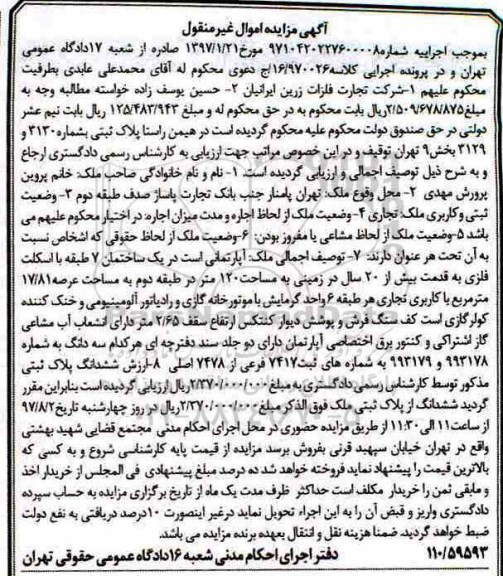 آگهی مزایده اموال غیر منقول
بموجب اجراییه شماره ۹۷۱۰۴۲۰۲۲۷۶۰۰۰۰۸ مورخ ۱۳۹۷/۱/۲۱ صادره از شعبه ۱۷دادگاه عمومی
تهران و در پرونده اجرایی کلاسه۱۶/۹۷۰۰۲۶/ج دعوی محکوم له آقای محمدعلی عابدی بطرفیت
محکوم علیهم ۱-شرکت تجارت فلزات زرین ایرانیان ۲- حسین یوسف زاده خواسته مطالبه وجه به
مبلغ۲/۵۰۹/۶۷۸/۸۷۵ریال بابت محکوم به در حق محکوم له و مبلغ ۱۲۵/۴۸۳/۹۴۳ ریال بابت نیم عشر
دولتی در حق صندوق دولت محکوم علیه محکوم گردیده است در همین راستا پلاک ثبتی بشماره ۳۱۳۰ و
۳۱۲۹ بخش۹ تهران توقیف و در این خصوص مراتب جهت ارزیابی به کارشناس رسمی دادگستری ارجاع
و به شرح ذیل توصیف اجمالی و ارزیابی گردیده است. ۱- نام و نام خانوادگی صاحب ملک: خانم پروین
پرورش مهدی ۲- محل وقوع ملک: تهران پامنار جنب بانک تجارت پاساژ صدف طبقه دوم ۳- وضعیت
ثبتی وکاربری ملک: تجاری ۴-وضعیت ملک از لحاظ اجاره و مدت میزان اجاره: در اختیار محکوم علیهم می
باشد ۵-وضعیت ملک از لحاظ مشاعی یا مفروز بودن: ۶-وضعیت ملک از لحاظ حقوقی که اشخاص نسبت
به آن تحت هر عنوان دارند: ۷- توصیف اجمالی ملک: آپارتمانی است در یک ساختمان ۷ طبقه با اسکلت
فلزی به قدمت بیش از ۲۰ سال در زمینی به مساحت۱۲۰ متر در طبقه دوم به مساحت عرصه۱۷/۸۱
مترمربع با کاربری تجاری هر طبقه ۶ واحد گرمایش با موتورخانه گازی و رادیاتور آلومینیومی و خنک کننده
کولر گازی است کف سنگ فرش و پوشش دیوار کنتکس ارتفاع سقف ۲/۶۵ متر دارای انشعاب آب مشاعی
گاز اشتراکی و کنتور برق اختصاصی آپارتمان دارای دو جلد سند دفترچه ای هر کدام سه دانگ به شماره
۹۹۳۱۷۸ و ۹۹۳۱۷۹ به شماره های ثبت۷۴۱۷ فرعی از ۷۴۷۸ اصلی ۸-ارزش ششدانگ پلاک ثبتی
مذکور توسط کارشناس رسمی دادگستری به مبلغ ۲/۳۷۰/۰۰۰/۰۰۰ریال ارزیابی گردیده است بنابراین مقرر
گردید ششدانگ از پلاک ثبتی ملک فوق الذکر مبلغ ۲/۳۷۰/۰۰۰/۰۰۰ریال در روز چهارشنبه تاریخ۹۷/۸/۲
از ساعت۱۱ الی ۱۱:۳۰ از طریق مزایده حضوری در محل اجرای احکام مدنی مجتمع قضایی شهید بهشتی
واقع در تهران خیابان سپهبد قرنی بفروش برسد مزایده از قیمت پایه کارشناسی شروع و به کسی که
بالاترین قیمت را پیشنهاد نماید فروخته خواهد شد ده درصد مبلغ پیشنهادی فی المجلس از خریدار اخذ
و مابقی ثمن را خریدار مکلف است حداکثر ظرف مدت یک ماه از تاریخ برگزاری مزایده به حساب سپرده
دادگستری واریز و قبض آن را به این اجراء تحویل نماید درغیر اینصورت ۱۰درصد دریافتی به نفع دولت
ضبط خواهد گردید. ضمنا هزینه نقل و انتقال بعهده برنده مزایده می باشد.
۱۱۰/۵۹۵۹۳ دفتر اجرای احکام مدنی شعبه ۱۶دادگاه عمومی حقوقی تهران